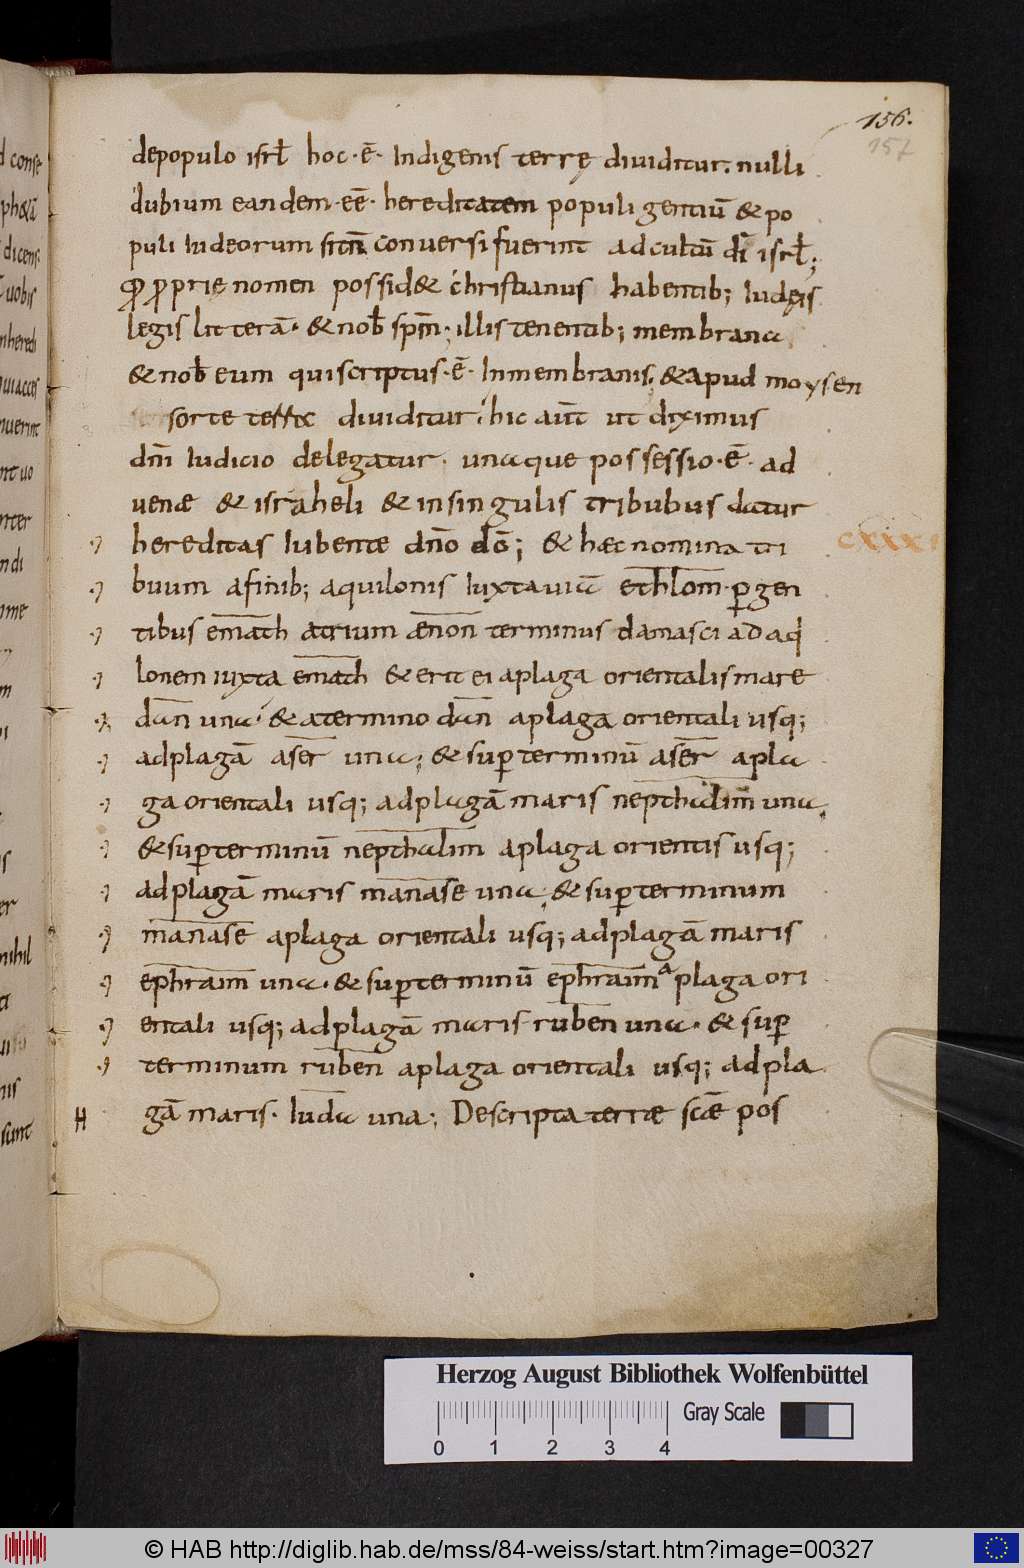 156.
157
depopulo isrł hoc·ē· Indigenis terrę dividitur. nulli
dubium eandem·eē· hereditatem populi gentiū & po
puli Iudeorum sitn̄ conversi fuerint ad cultū dī isrł;
propprię nomen possid& christianus habentib; Iudęis
legis litterā· & nob̄ spm̄· illis tenentib; membrana
& nob̄ eum qui scriptus·ē· In membranis; & apud moysen
sorte terra dividitur; hic aūt ut diximus
dnī Iudicio delegatur· unaque possessio·ē· ad
venæ & israheli & in singulis tribubus datur
hereditas Iubente dn̄o dō; & hæc nomina tri
CXXXI
buum afinib; aquilonis Iuxta viā ethlom̄· ꝑgen
tibus emath atrium ænon terminus damasci ad aqi
lonem iuxta emath & erit ei aplaga orientalis mare
dan una; & atermino dan aplaga orientali usq;
adplagā aser una; & suꝑ terminū aser apla
ga orientali usq; adplagā maris nepthalim una,
& suꝑterminū nepthalim aplaga orientis usq;
adplagā maris manase una; & suꝑterminum
manase aplaga orientali usq; adplagā maris
ephraim una· & suꝑterminū ephraim a plaga ori
entali usq; adplagā maris ruben una· & suꝑ
terminum ruben aplaga orientali usq; adpla
gā maris· Iuda una; Descripta terræ scæ pos
Herzog August Bibliothek Wolfenbüttel
Gray Scale
0 1 2 3 4
© HAB http://diglib.hab.de/mss/84-weiss/start.htm?image=00327